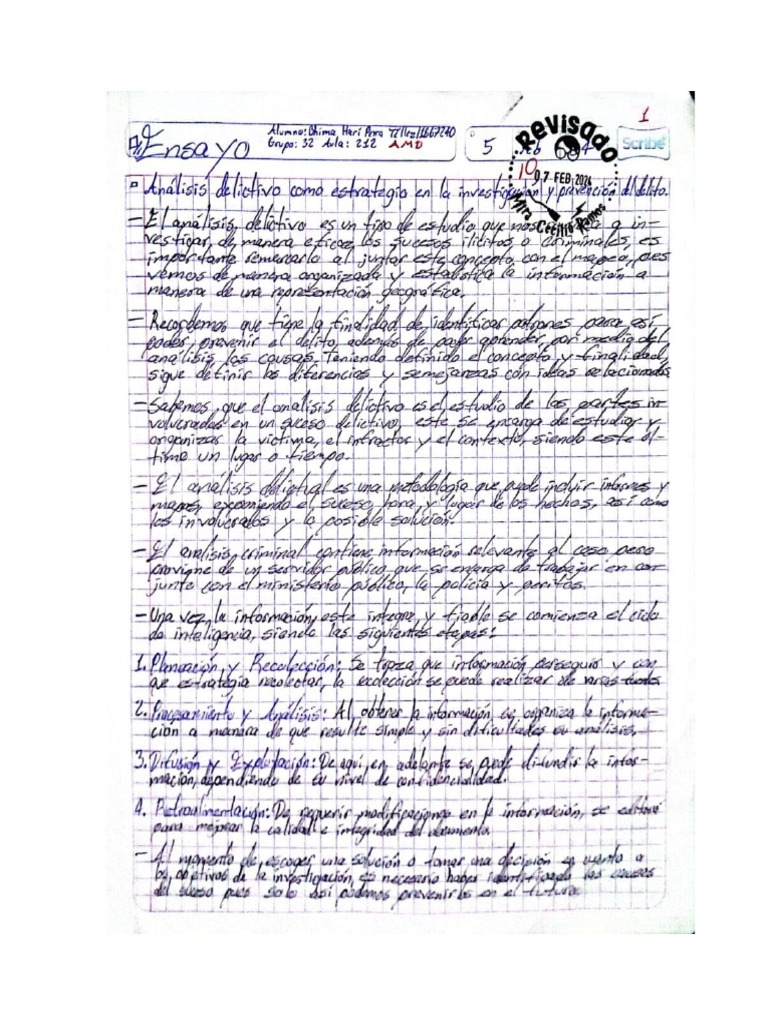 Ensayo
Alumno: Bhima Hari Parra Téllez/1867240
Grupo: 32 Aula: 212 AMD
5
Scribe
1
Revisado
10
07 FEB 2024
Mtra Cecilia Ramos
Análisis delictivo como estrategia en la investigación y prevención del delito.
- El análisis delictivo es un tipo de estudio que nos a in-
vestigar, de manera eficaz, los sucesos ilícitos o criminales, es
importante remarcarlo al juntar este concepto con el mapeo, pues
vemos de manera organizada y estadística la información a
manera de una representación geográfica.
- Recordemos que tiene la finalidad de identificar patrones para así
poder prevenir el delito, además de poder aprender, por medio del
análisis las causas. Teniendo definido el concepto y finalidad,
sigue definir las diferencias y semejanzas con ideas relacionadas
- Sabemos que el análisis delictivo es el estudio de las partes in-
volucradas en un suceso delictivo, este se encarga de estudiar y
organizar la víctima, el infractor y el contexto, siendo este úl-
timo un lugar o tiempo.
- El análisis delictual es una metodología que puede incluir informes y
mapas, exponiendo el suceso, hora y lugar de los hechos, así como
los involucrados y la posible solución.
- El analisis criminal contiene información relevante al caso pero
proviene de un servidor público que se encarga de trabajar en con-
junto con el ministerio público, la policía y peritos.
- Una vez, la información, este integra, y fiable se comienza el ciclo
de inteligencia, siendo las siguientes etapas:
1. Planeación y Recolección: Se traza que información perseguir y con
que estrategia recolectar, la recolección se puede realizar de varias
2. Procesamiento y Análisis: Al obtener la información, se organiza la informa-
ción a manera de que resulte simple y sin dificultades su análisis.
3. Difusión y Explotación: De aquí, en adelante se puede difundir la infor-
mación, dependiendo de su nivel de confidencialidad.
4. Retroalimentación: De requerir modificaciones en la información, se editará
para mejorar la calidad e integridad del documento.
- Al momento de escoger una solución o tomar una decisión en cuanto a
los objetivos de la investigación, es necesario haber identificado las causas
del suceso pues solo así podemos prevenirlos en el futuro.